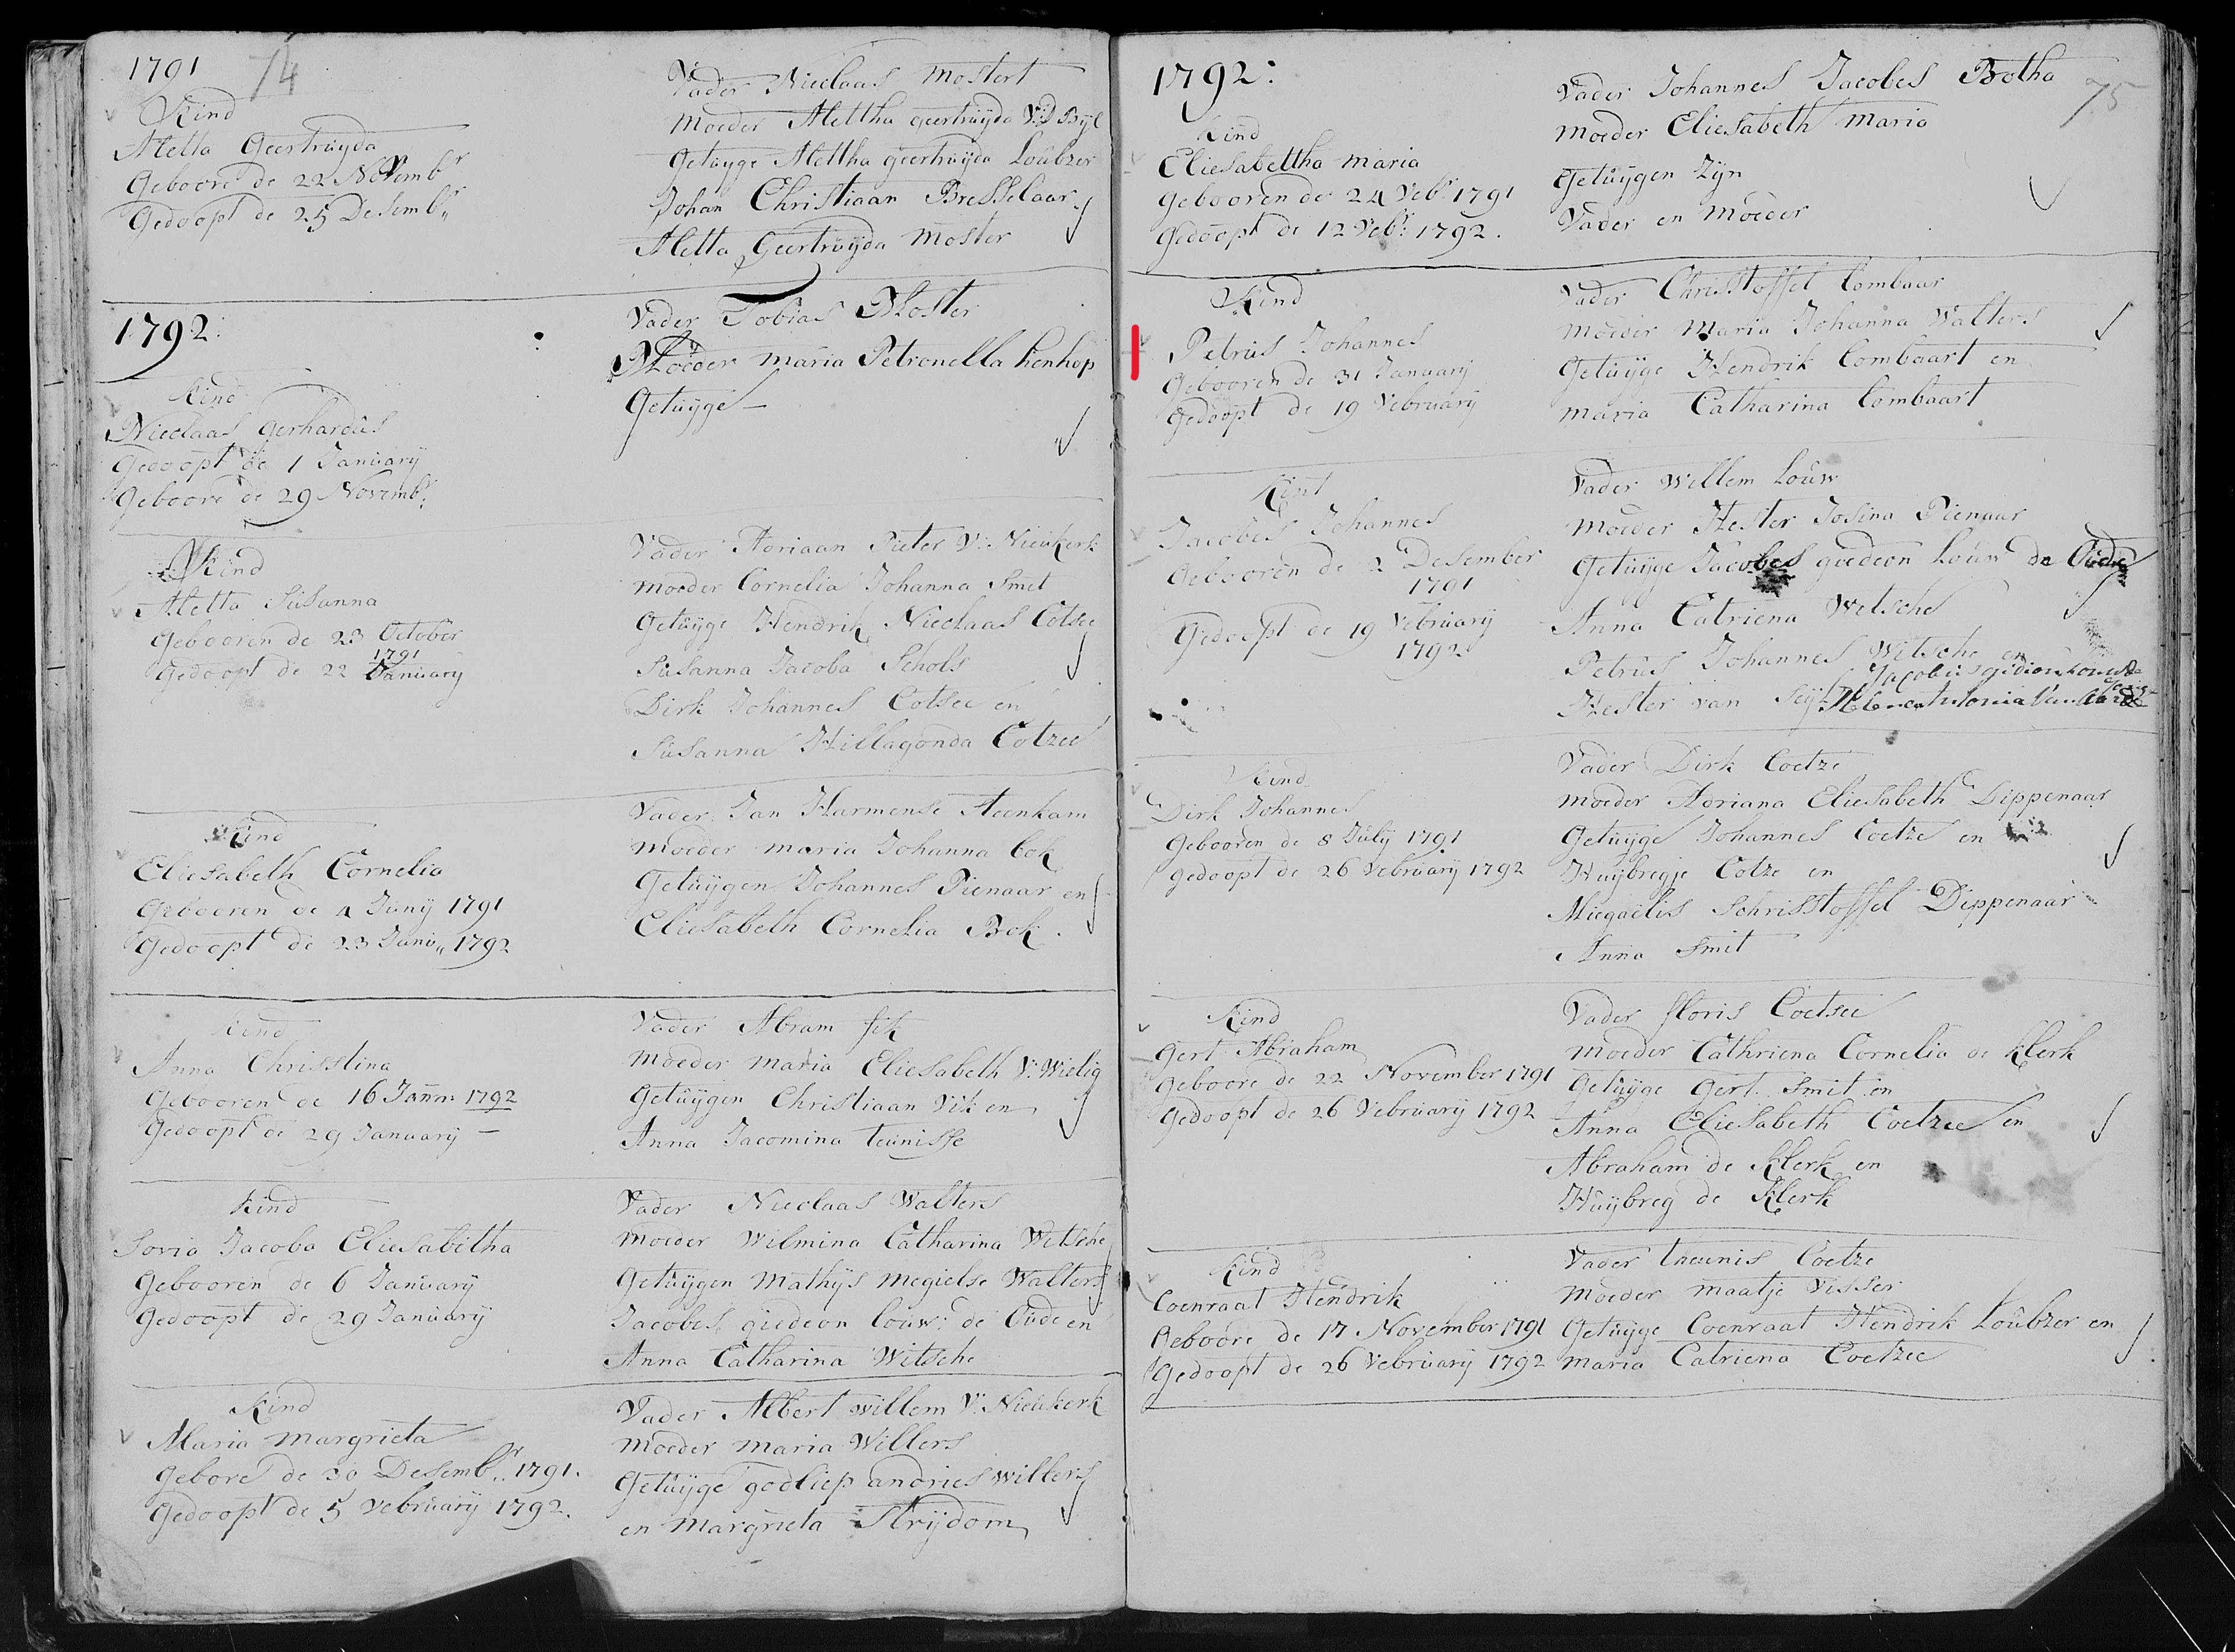 1791 74
Kind
Aletta Geertruyda
Geboore de 22 Novembr
Gedoopt de 25 Desembr
Vader Nicolaas Mostert
Moeder Alettha geertruyda V:D Byl
Getuyge Alettha geertruyda Loubzer
Johan Christiaan Bresselaar
Aletta Geertruyda Moster
1792:
Kind
Nicolaas gerhardus
Gedoopt de 1 January
Geboore de 29 Novembr:
Vader Tobias Moster
Moeder maria Petronella henhop
Getuyge —
Kind
Aletta Susanna
Gebooren de 23 October
1791
Gedoopt de 22 January
Vader Adriaan Pieter V: Nieukerk
moeder Cornelia Johanna Smit
Getuyge Hendrik Nicolaas Cotsee
Susanna Jacoba Schols
Dirk Johannes Cotsee en
Susanna Hillagonda Cotzee
Kind
Eliesabeth Cornelia
Gebooren de 4 Juny 1791
Gedoopt de 23 Janu,, 1792
Vader Jan Harmense Steenkam
moeder maria Johanna bok
Getuygen Johannes Pienaar en
Eliesabeth Cornelia Bok.
kind
Anna Chrisstina
Gebooren de 16 Janm: 1792
Gedoopt de 29 January —
Vader Abram fik
moeder maria Eliesabeth V: Wielig
Getuygen Christiaan Vik en
Anna Jacomina teunisse
kind
Sovia Jacoba Eliesabitha
Gebooren de 6 January
Gedoopt de 29 January
Vader Nicolaas Walters
moeder Wilmina Catharina Witsche
Getuygen Mathys megielse Walters
Jacobes giedeon louw: de Oude en
Anna Catharina Witsche
Kind
Maria margrieta
gebore de 30 Desembr. 1791.
Gedoopt de 5 Vebruary 1792.
Vader Albert willem V: Nieukerk
moeder maria Willers
Getuyge godliep andries willers
en Margrieta Strijdom
1792: 75
Kind
Eliesabettha maria
Gebooren de 24 Vebr 1791
Gedoopt de 12 Vebr: 1792.
Vader Johannes Jacobes Botha
moeder Eliesabeth maria
Getuygen Zyn
Vader en moeder
Kind
Petrus Johannes
Gebooren de 31 January
Gedoopt de 19 Vebruary
Vader Chrisstoffel Combaar
moeder Maria Johanna Walters
Getuyge Hendrik Combaart en
maria Catharina Combaart
Kint
Jacobes Johannes
Gebooren de 2 Desember
1791
Gedoopt de 19 Vebruary
1792
Vader Willem Louw
moeder Hester Josina Pienaar
Getuyge Jacobes giedeon Louw de Oude
Anna Catriena Witsche
Petrus Johannes Witsche en
Jacobus gidion Louw de
Hester van
Kind
Dirk Johannes
Gebooren de 8 July 1791
gedoopt de 26 Vebruary 1792
Vader Dirk Coetze
moeder Adriana Eliesabeth Dippenaar
Getuyge Johannes Coetze en
Huybregje Cotze en
Miegaelis Schrisstoffel Dippenaar
Anna Smit
Kind
gert Abraham
geboore de 22 November 1791
Gedoopt de 26 Vebruary 1792
Vader floris Coetsee
moeder Cathriena Cornelia de Klerk
Getuyge gert Smit en
Anna Eliesabeth Coetzee en
Abraham de Klerk en
Huybreg de Klerk
Kind
Coenraat Hendrik
Geboore de 17 November 1791
Gedoopt de 26 Vebruary 1792
Vader theunis Coetze
moeder maatje Visser
Getuyge Coenraat Hendrik Loubzer en
maria Catriena Coetzee